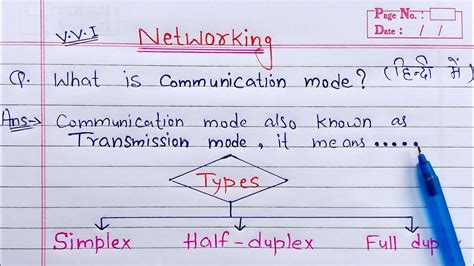 Page No.:
Date: / /
V.V.I
Networking
Q. What is Communication mode? (हिन्दी में)
Ans→ Communication mode also known as
Transmission mode, it means .....
Types
Simplex Half-duplex Full